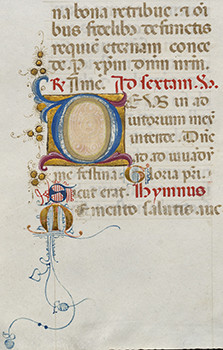 na bona retribue. ⁊ oī
bus fidelib' defunctis
requie eternam conce
de. P. xp̄m dnm nrm.
R. Ame. Ad sextam. V.
DEVS in ad
iutorium meū
intende. Dn̄e
ad ad iuuādū
me festina. Gloria pri.
Sicut erat. Hymnus
Memento salutis auc